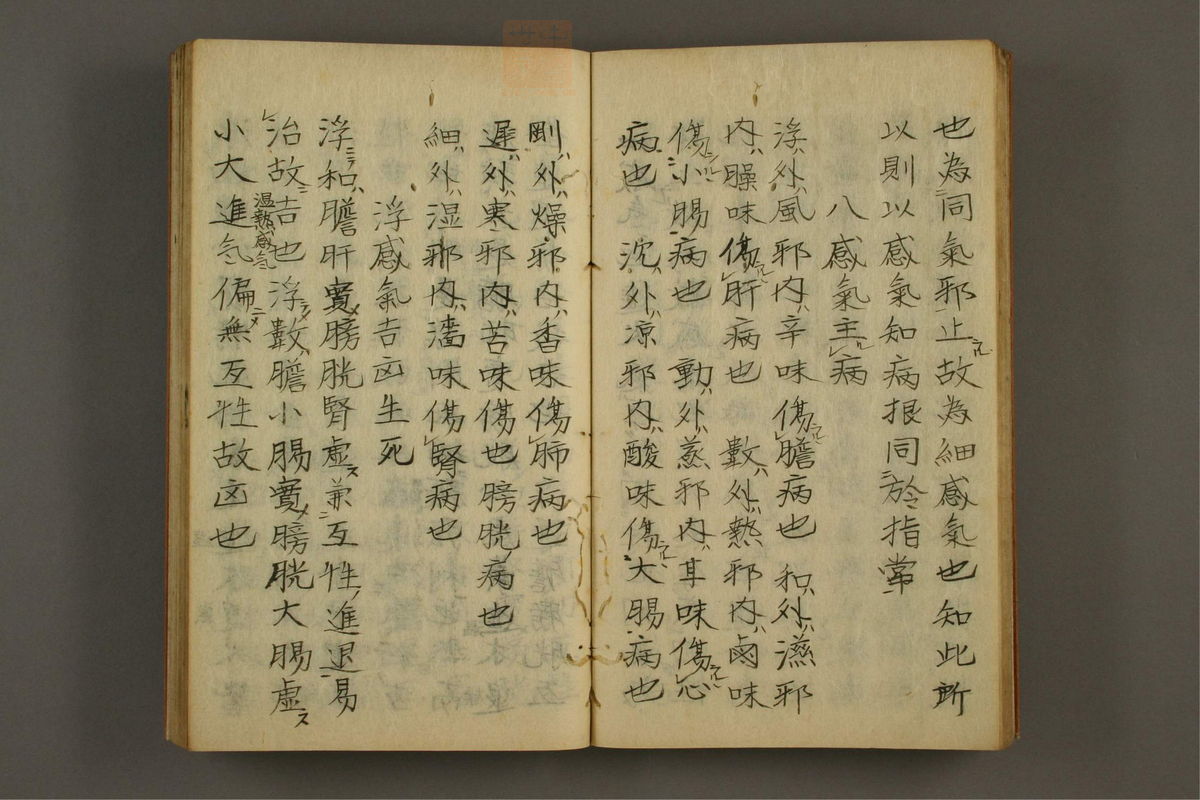 也為同氣邪止故為細感氣也知此所
以則以感氣知病根同於指常
八感氣主病
浮外風邪内辛味傷膽病也 和外濕邪
内臊味傷肝病也 數外熱邪内鹵味
傷小腸病也 動外蒸邪内耳味傷心
病也 沈外凉邪内酸味傷大腸病也
剛外燥邪内香味傷肺病也
遲外寒邪内苦味傷也膀胱病也
細外湿邪内濇味傷腎病也
浮感氣吉凶生死
浮和膽肝實膀胱腎虚兼互性進退易
治故吉也浮數膽小腸實膀胱大腸虚
温熱感氣
小大進氣偏無互性故凶也